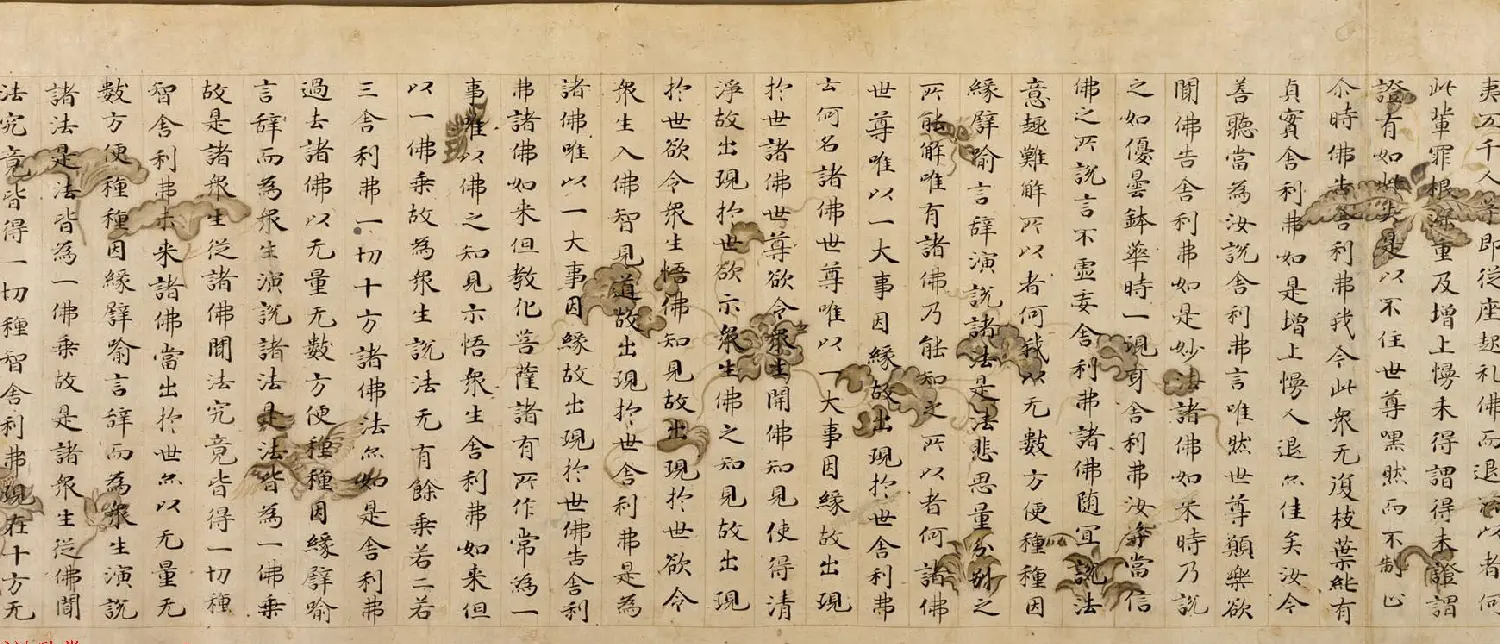 夷五千人等即従座起礼佛而退所以者何
此輩罪根深重及增上慢未得謂得未證謂
證有如此失是以不住世尊嘿然而不制止
尒時佛告舍利弗我今此衆无復枝葉純有
貞實舍利弗如是增上慢人退亦佳矣汝今
善聽當為汝說舍利弗言唯然世尊願樂欲
聞佛告舍利弗如是妙法諸佛如来時乃說
之如優曇鉢華時一現耳舍利弗汝等當信
佛之所說言不虛妄舍利弗諸佛随宜說法
意趣難解所以者何我以无數方便種種因
緣譬喻言辞演說諸法是法非思量分別之
所能解唯有諸佛乃能知之所以者何諸佛
世尊唯以一大事因緣故出現於世舍利弗
云何名諸佛世尊唯以一大事因緣故出現
於世諸佛世尊欲令衆生開佛知見使得清
淨故出現於世欲示衆生佛之知見故出現
於世欲令衆生悟佛知見故出現於世欲令
衆生入佛智見道故出現於世舍利弗是為
諸佛唯以一大事因緣故出現於世佛告舍利
弗諸佛如来但教化菩薩諸有所作常為一
事唯以佛之知見示悟衆生舍利弗如来但
以一佛乗故為衆生說法无有餘乗若二若
三舍利弗一切十方諸佛法亦如是舍利弗
過去諸佛以无量无數方便種種因緣譬喻
言辞而為衆生演說諸法是法皆為一佛乗
故是諸衆生従諸佛聞法究竟皆得一切種
智舍利弗未来諸佛當出於世亦以无量无
數方便種種因緣譬喻言辞而為衆生演說
諸法是法皆為一佛乗故是諸衆生従佛聞
法究竟皆得一切種智舍利弗現在十方无